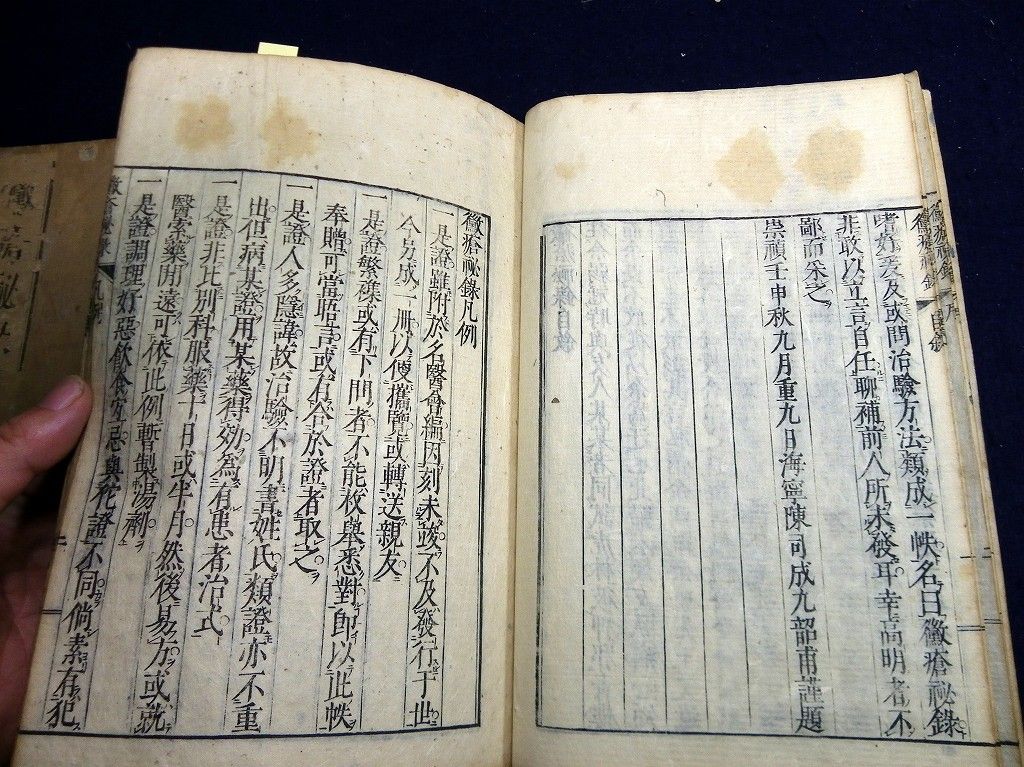 嗜好爰及或問治驗方法類成一帙名曰黴瘡祕錄
非敢以立言自任聊補前人所未發耳幸高明者不
鄙而采之
崇禎壬申秋九月重九日海寧陳司成九韶甫謹題
黴瘡祕錄凡例
一是證雖附於名醫會編因刻未竣不及發行于世
今另成一冊以便攜覽或轉送親友
一是證繁襍或有下問者不能枚舉悉對即以此帙
奉贈可當晤言或有合於證者取之
一是證人多隱諱故治驗不明書姓氏類證亦不重
出但病某證用某藥得効為有患者治式
一是證非比別科服藥十日或半月然後易方或就
醫索藥閒遠可依此例暫製湯劑
一是證調理好惡飲食宜忌與他證不同倘素有犯